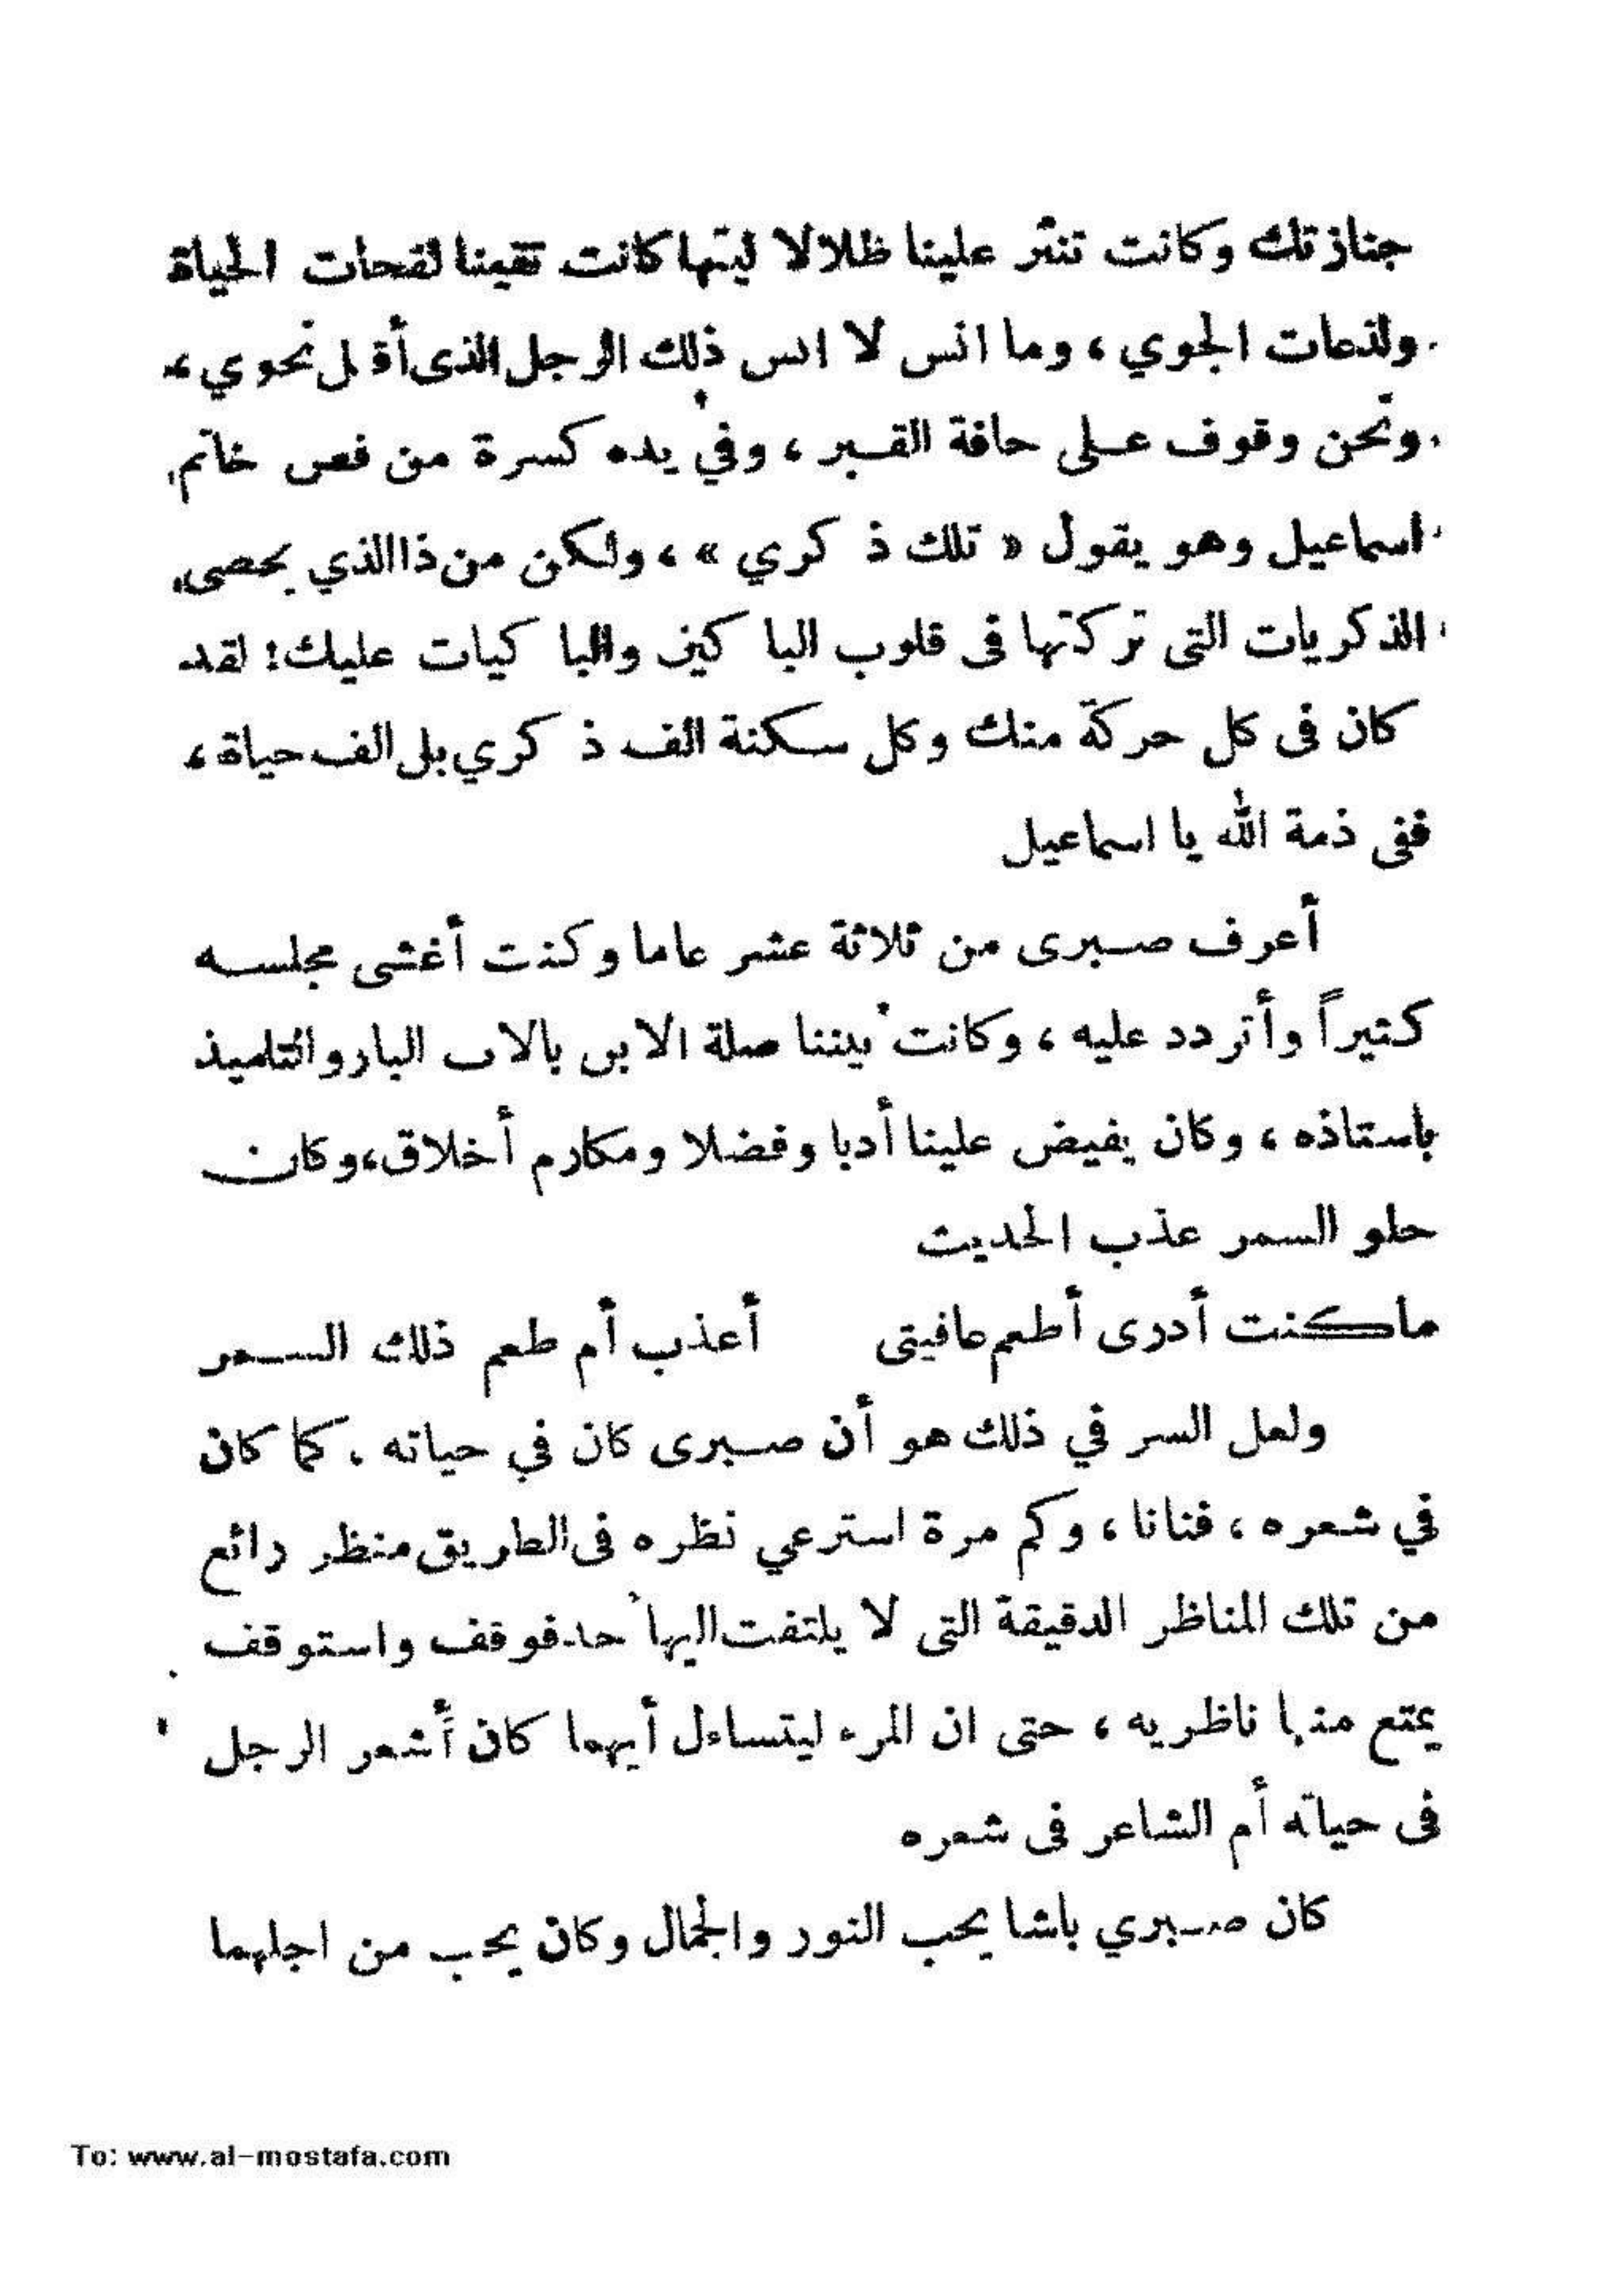 جنازتك وكانت تنثر علينا ظلالا ليتها كانت تقينا لفحات الحياة
ولذعات الجوي ، وما انس لا انس ذلك الرجل الذى أقبل نحوي ،
ونحن وقوف على حافة القبر ، وفي يده كسرة من فص خاتم
اسماعيل وهو يقول « تلك ذكري » ، ولكن من ذا الذي يحصى
الذكريات التى تركتها فى قلوب الباكين والباكيات عليك ! لقد
كان فى كل حركة منك وكل سكنة الف ذكري بل الف حياة ،
ففى ذمة الله يا اسماعيل
أعرف صبرى من ثلاثة عشر عاما وكنت أغشى مجلسه
كثيراً وأتردد عليه ، وكانت بيننا صلة الابن بالاب البار والتلميذ
باستاذه ، وكان يفيض علينا أدبا وفضلا ومكارم أخلاق ، وكان
حلو السمر عذب الحديث
ما كنت أدرى أطعم عافيتى أعذب أم طعم ذلك السمر
ولعل السر في ذلك هو أن صبرى كان في حياته ، كما كان
في شعره ، فنانا ، وكم مرة استرعي نظره فى الطريق منظر رائع
من تلك المناظر الدقيقة التى لا يلتفت اليها أحد فوقف واستوقف
يمتع منها ناظريه ، حتى ان المرء ليتساءل أيهما كان أشعر الرجل
فى حياته أم الشاعر فى شعره
كان صبري باشا يحب النور والجمال وكان يحب من اجلهما
To: www.al-mostafa.com